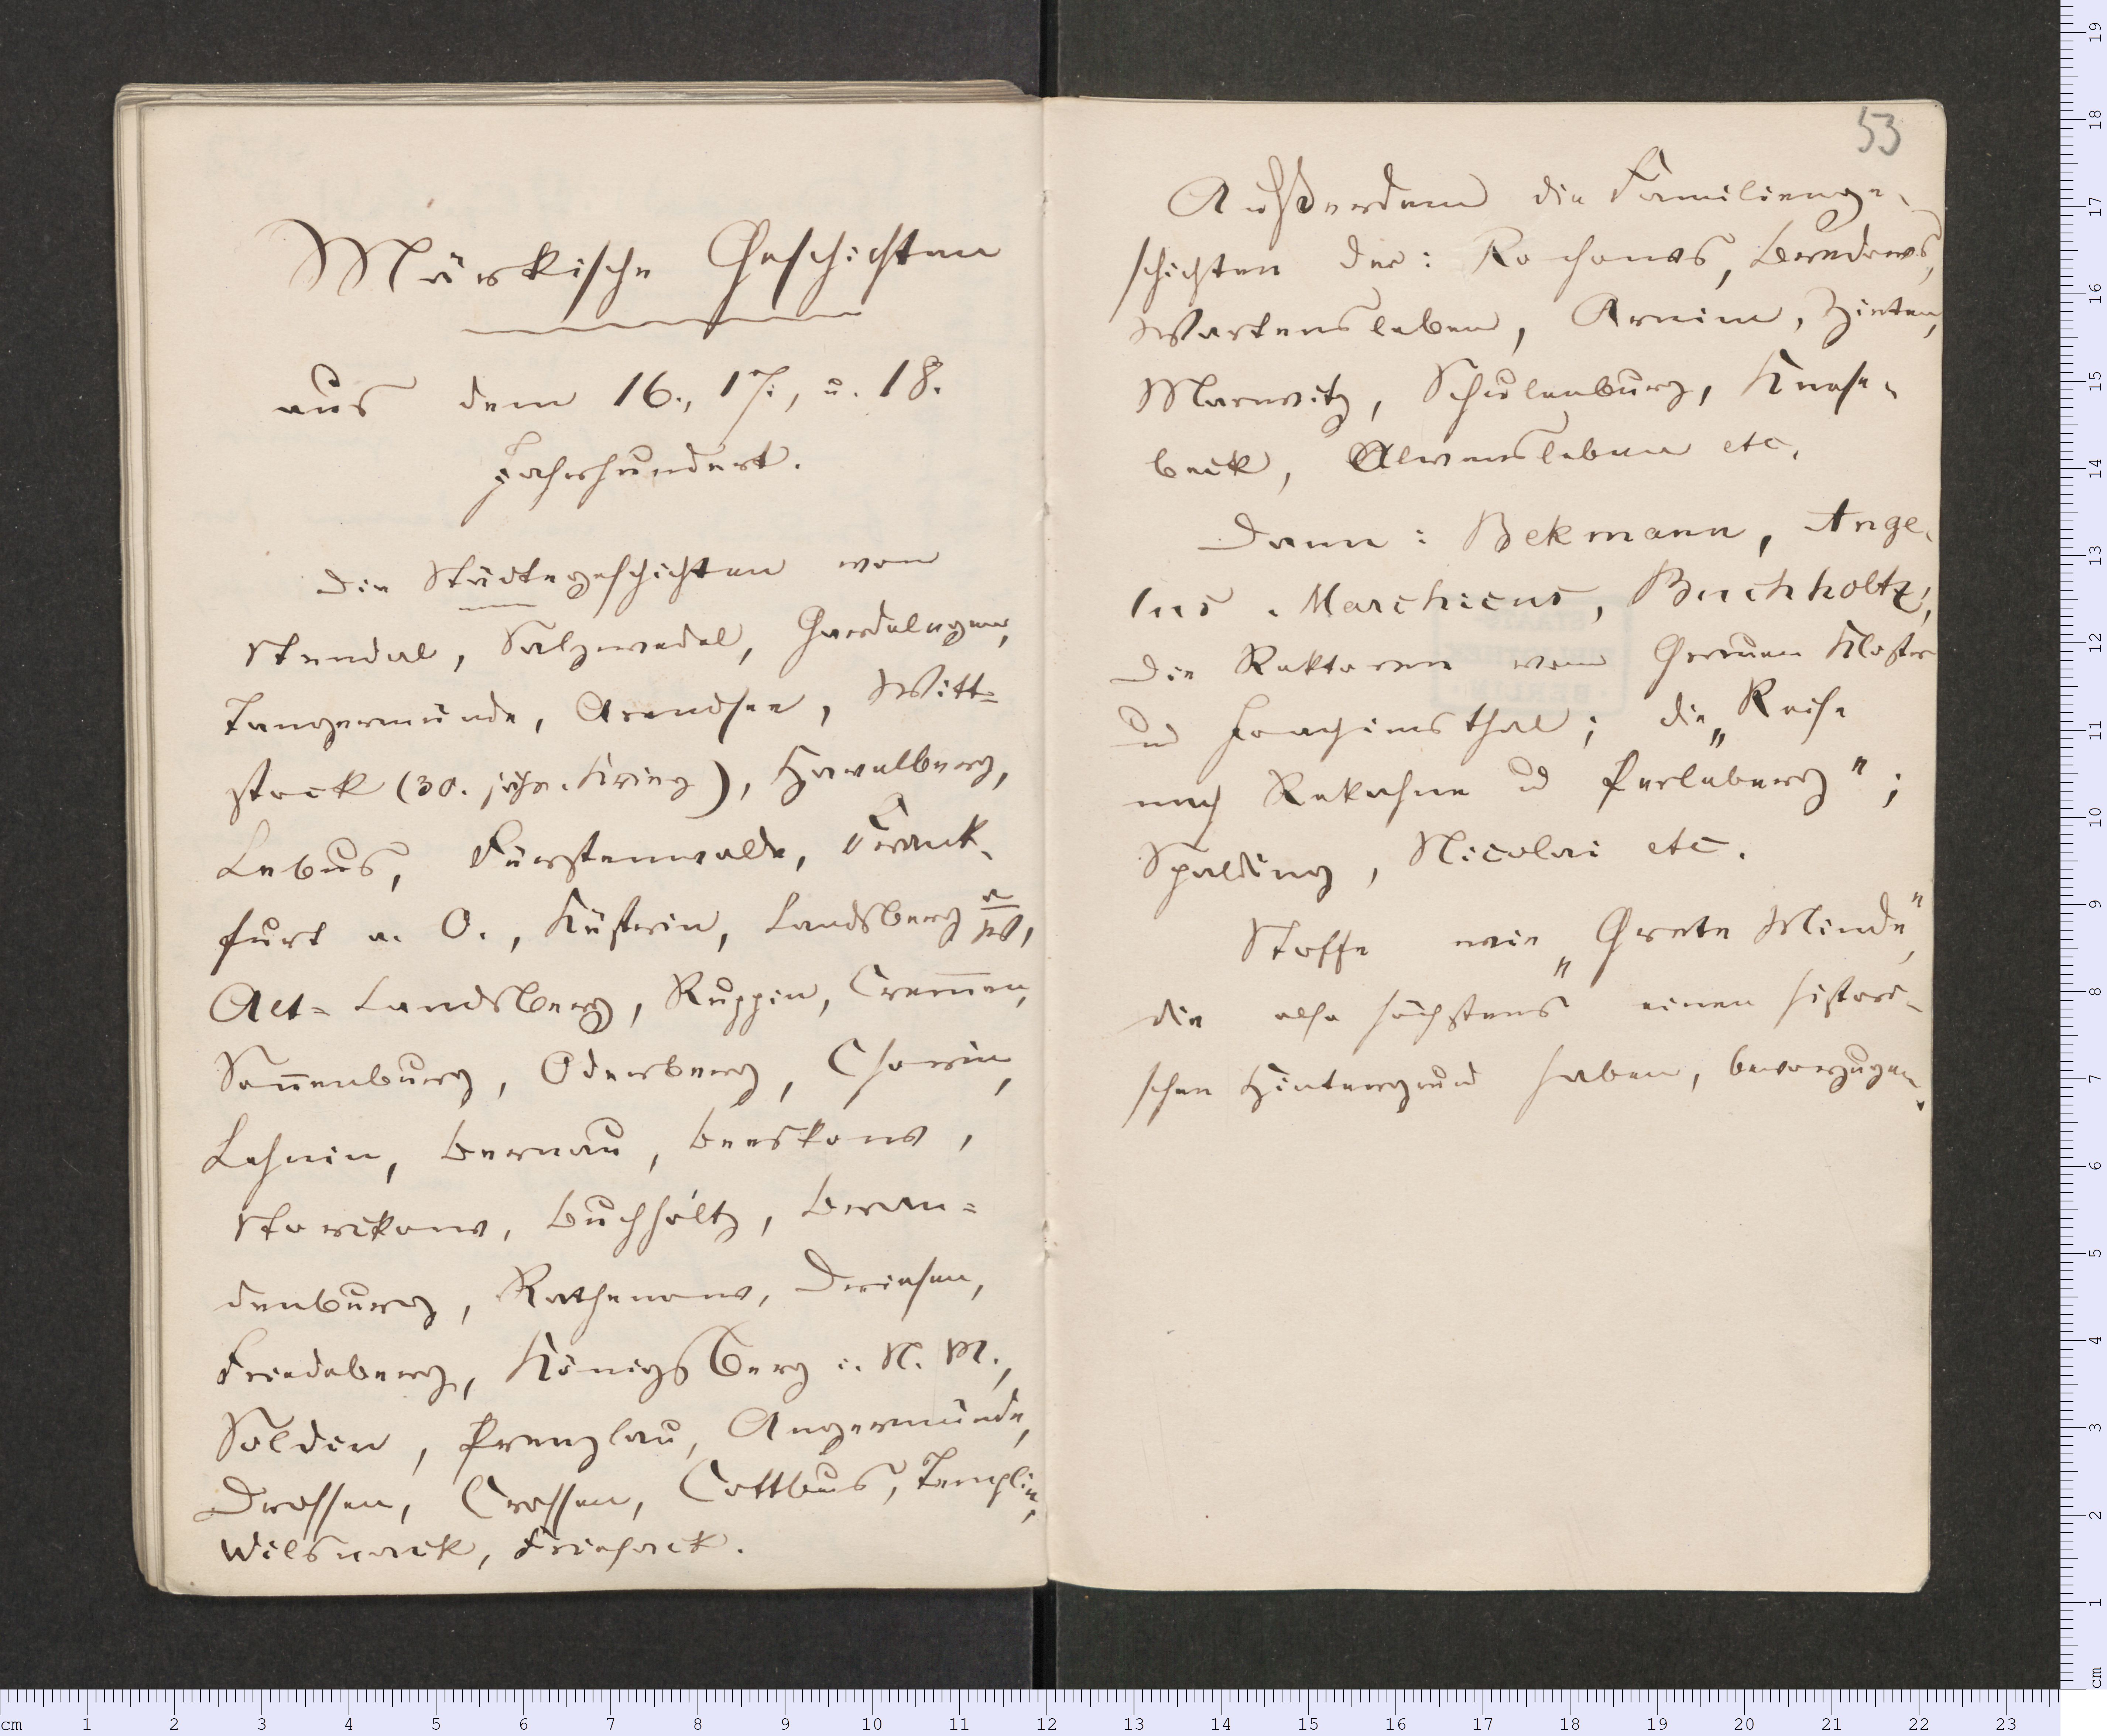 Märkische Geschichten
aus dem 16., 17., u. 18.
Jahrhundert.
Die Städtegeschichten von
Stendal, Salzwedel, Gardelegen,
Tangermünde, Arendsee, Witt=
stock (30. jähr. Krieg), Havelberg,
Lebus, Fürstenwalde, Frank-
furt a. O., Küstrin, Landsberg a/W,
Alt=Landsberg, Ruppin, Crem̅en,
Son̅enburg, Oderberg, Chorin,
Lehnin, Bernau, Beeskow,
Storckow, Buchholtz, Bran=
denburg, Rathenow, Driesen,
Friedeberg, Königsberg i. N. M.,
Soldin, Prenzlau, Angermünde,
Drossen, Crossen, Cottbus, Templin,
Wilsnack, Friesack.
53
Außerdem die Familienge-
schichten der: Rochows, Bredows,
Wartensleben, Arnim, Zieten,
Marwitz, Schulenburg, Knese-
beck, Alvensleben etc.
Dann: Bekmann, Ange-
lus Marchicus, Buchholtz,
die Rektoren vom Grauen Kloster
u Joachimsthal; die „Reise
nach Rekahne u Perleberg";
Spalding, Nicolai etc.
Stoffe wie „Grete Minde",
die also höchstens einen histori-
schen Hintergrund haben, bevorzugen.
STAATS-
BIBLIOTHEK
BERLIN